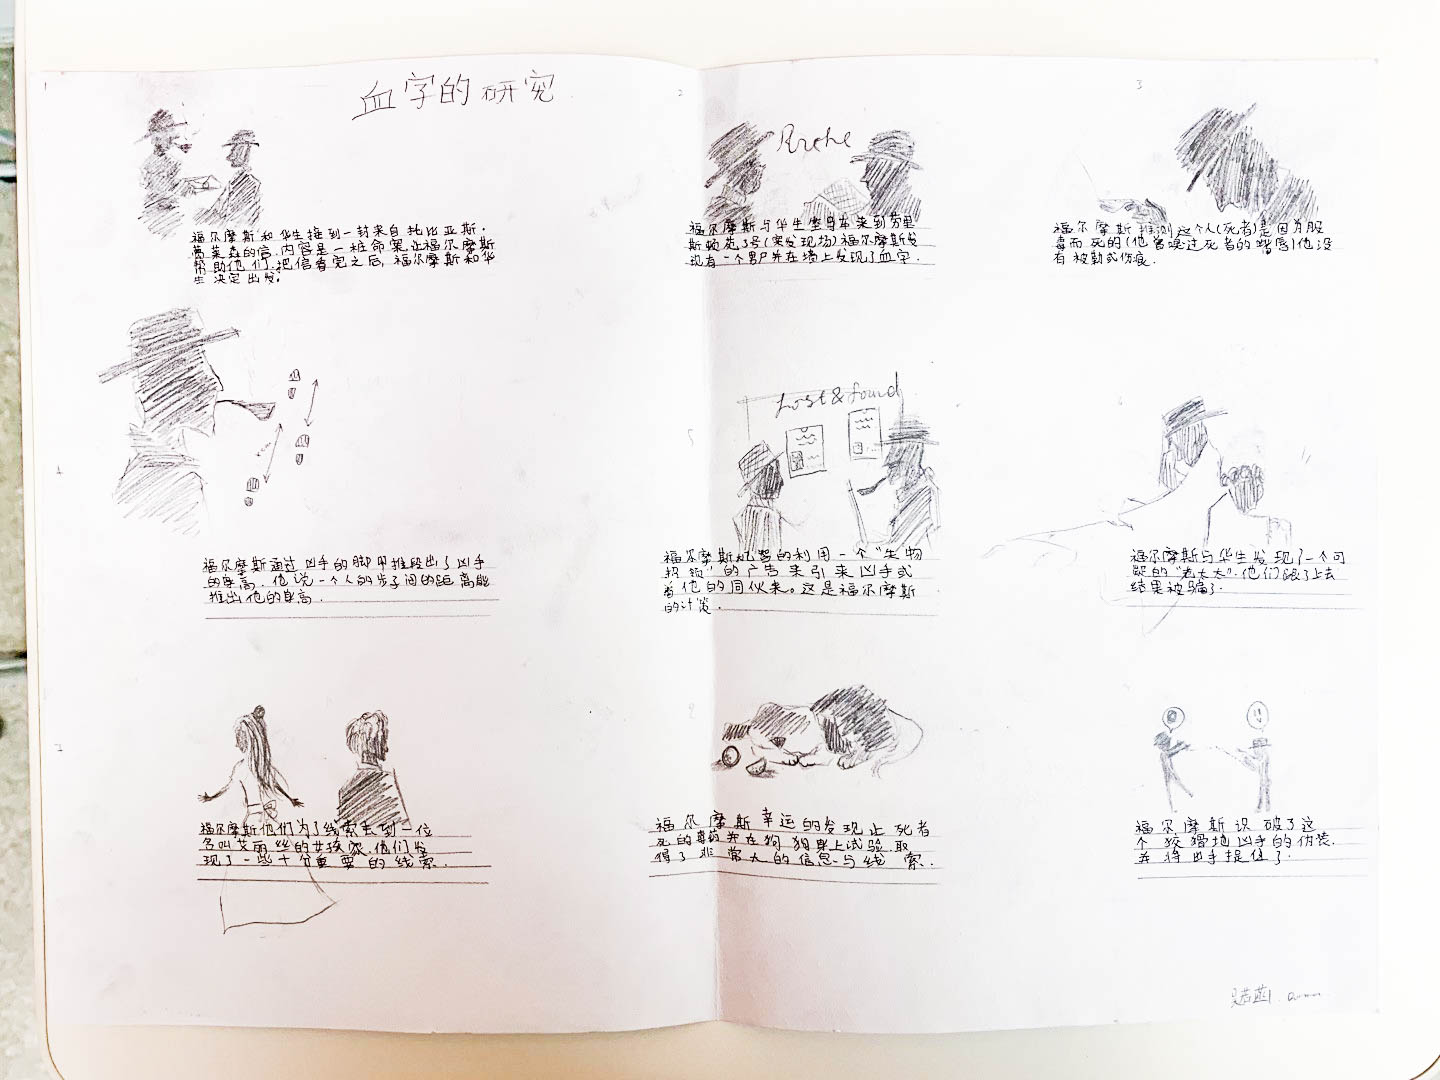 血字的研究
1
福尔摩斯和华生接到一封来自托比亚斯·
葛莱森的信.内容是一桩命案让福尔摩斯
帮助他们.把信看完之后,福尔摩斯和华
生决定出发。
2
Rache
福尔摩斯与华生坐马车来到劳里
斯顿花园3号(案发现场)福尔摩斯发
现有一个男尸并在墙上发现了血字.
3
福尔摩斯推测这个人(死者)是因为服
毒而死的(他曾嗅过死者的嘴唇)他没
有被勒或伤痕.
4
福尔摩斯通过凶手的脚甲推段出了凶手
的身高.他说一个人的步子间的距离能
推出他的身高.
5
Lost & found
福尔摩斯机智的利用一个“失物
招领”的广告来引来凶手或
者他的同伙来。这是福尔摩斯
的计策.
6
福尔摩斯与华生发现了一个可
疑的“老太太”.他们跟了上去
结果被骗了.
7
福尔摩斯他们为了线索去到一位
名叫艾丽丝的女孩家.他们发
现了一些十分重要的线索.
8
福尔摩斯幸运的发现让死者
死的毒药并在狗狗身上试验.取
得了非常大的信息与线索.
福尔摩斯识破了这
个狡猾地凶手的伪装.
并将凶手捉住了.